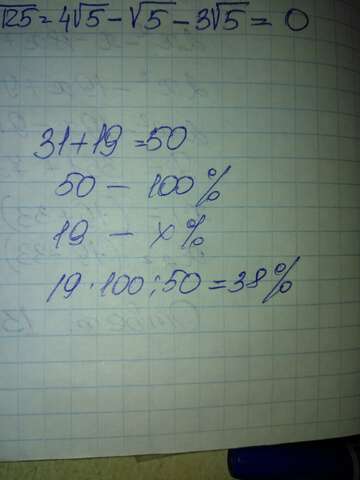 √25 = 4√5 - √5 - 3√5 = 0
31 + 19 = 50
50 - 100%
19 - x%
19 · 100 : 50 = 38%